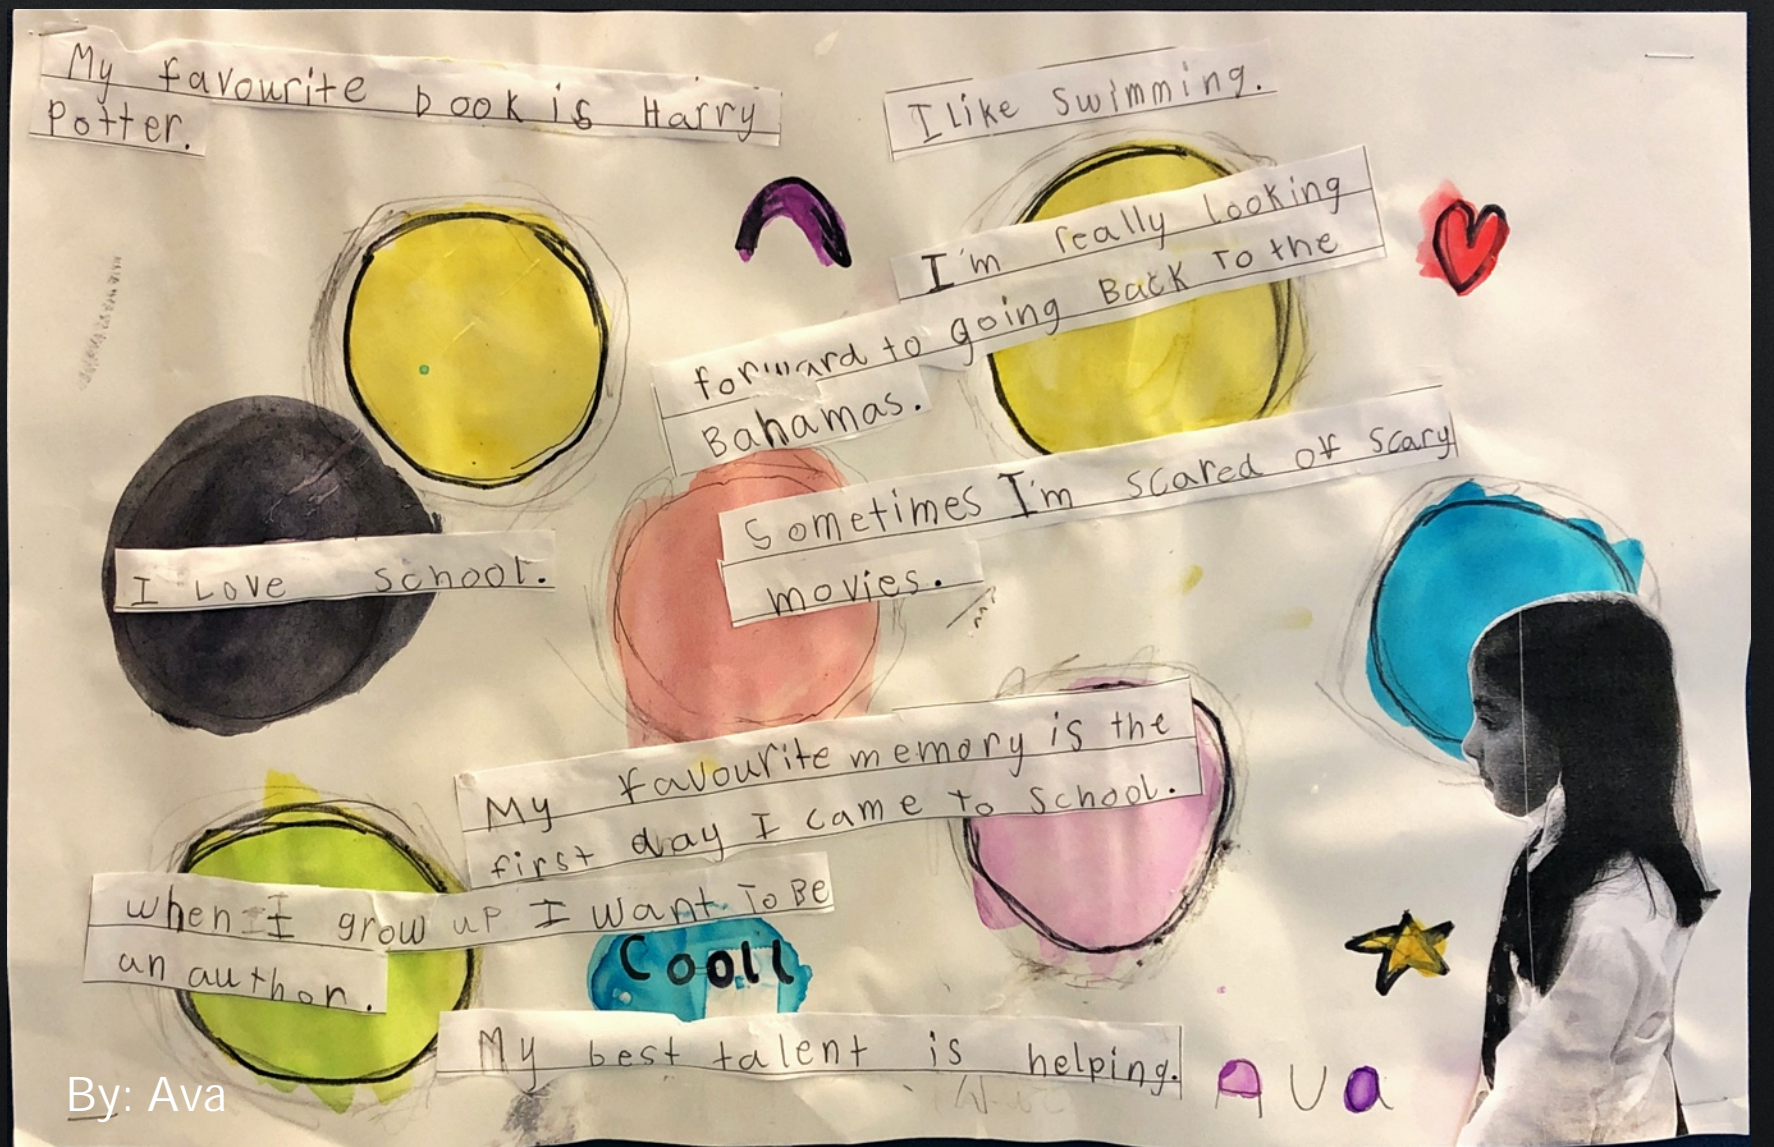 My favourite book is Harry
Potter.
I like swimming.
I'm really looking
forward to going Back To the
Bahamas.
Sometimes I'm scared of scary
movies.
I Love school.
My favourite memory is the
first day I came to school.
when I grow up I want To BE
an author.
Cooll
My best talent is helping.
Ava
By: Ava